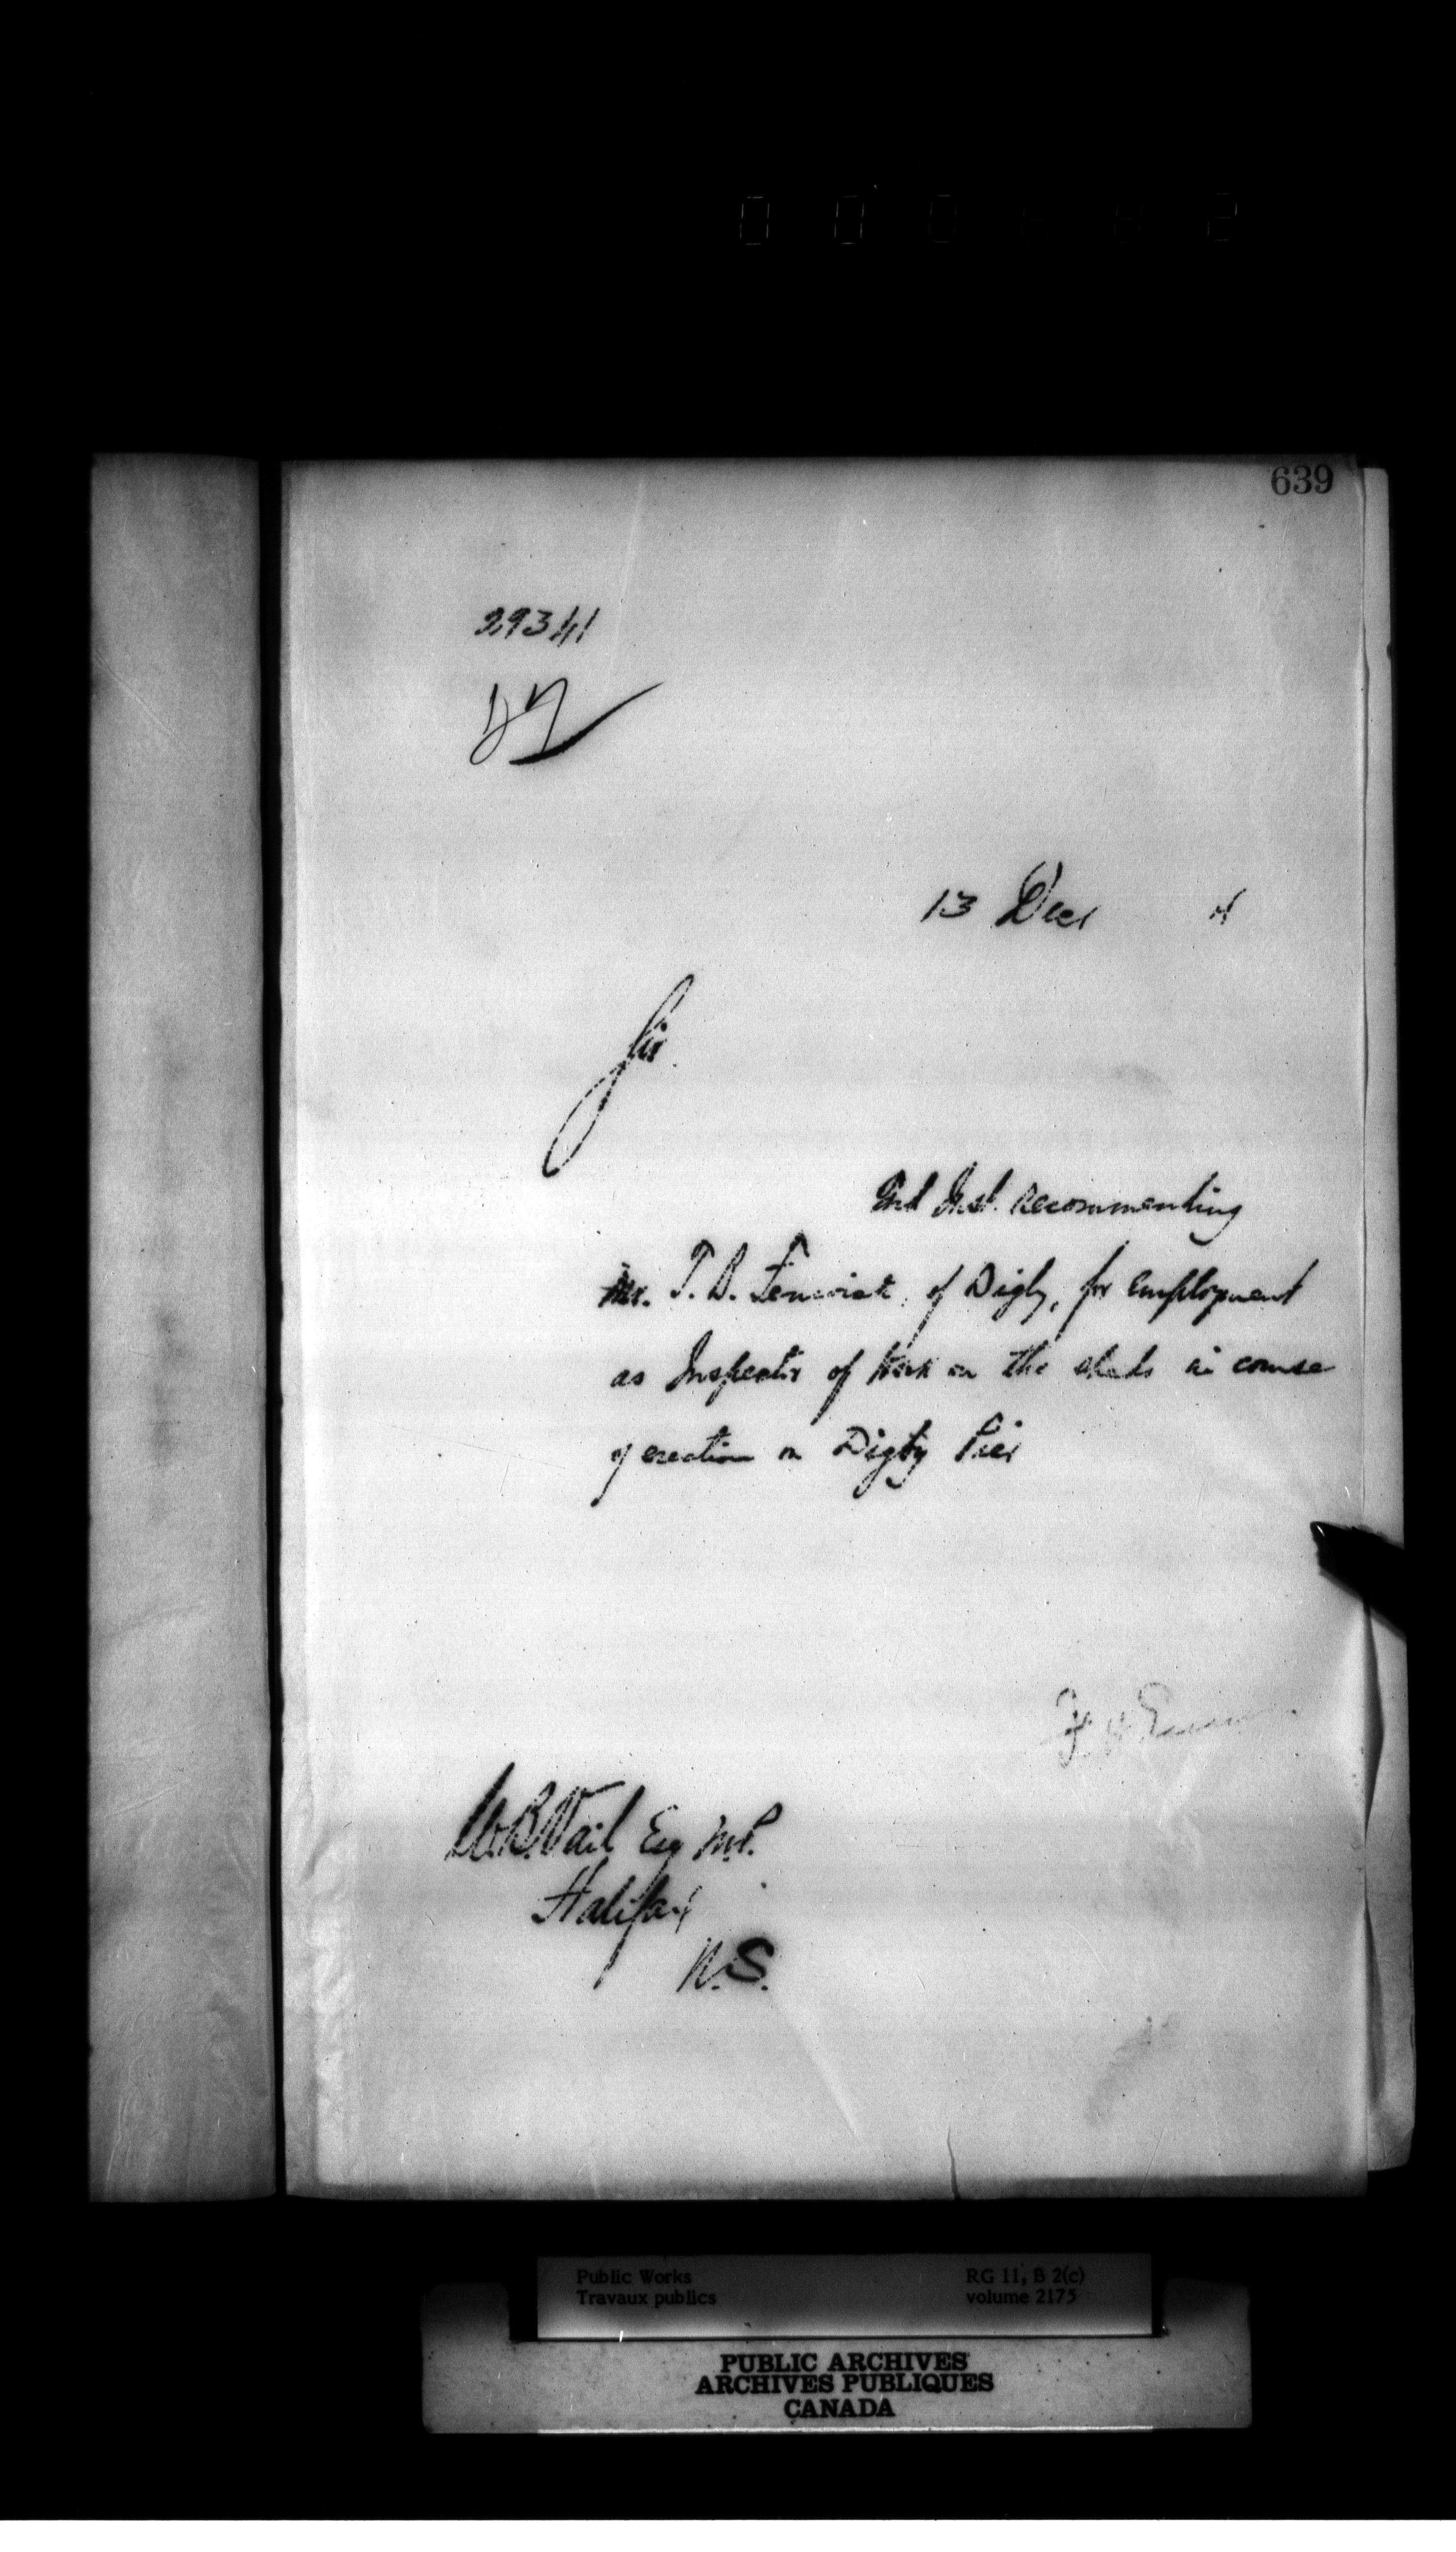 639
29341
13 Decr 4
Sir
Inst. recommending
Mr. T. B. Fenwick, of Digby, for employment
as Inspector of Work on the sheds in course
of erection on Digby Pier
W.B. Vail Esq M.P.
Halifax
N.S.
Public Works
Travaux publics
RG 11, B 2(c)
volume 2175
PUBLIC ARCHIVES
ARCHIVES PUBLIQUES
CANADA